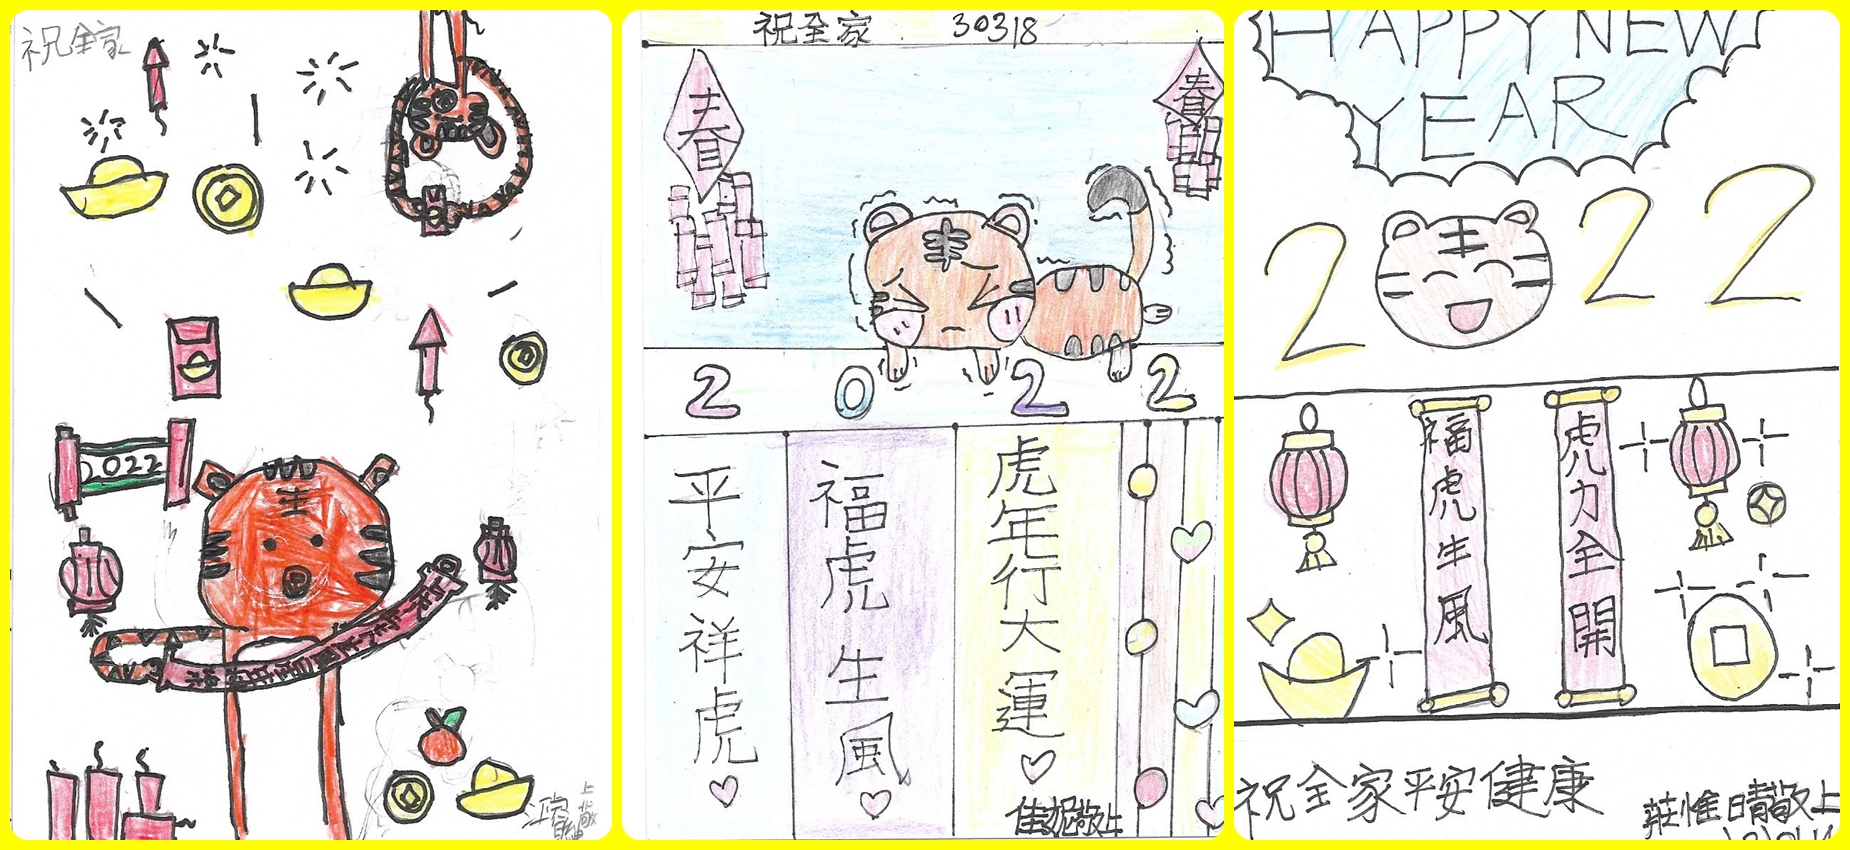 祝全家
2022
上
敬
祝全家 30318
春
春
2022
平安祥虎
福虎生風
虎年行大運
佳妮敬上
HAPPY NEW
YEAR
2 22
福虎生風
虎力全開
祝全家平安健康
莊惟晴敬上